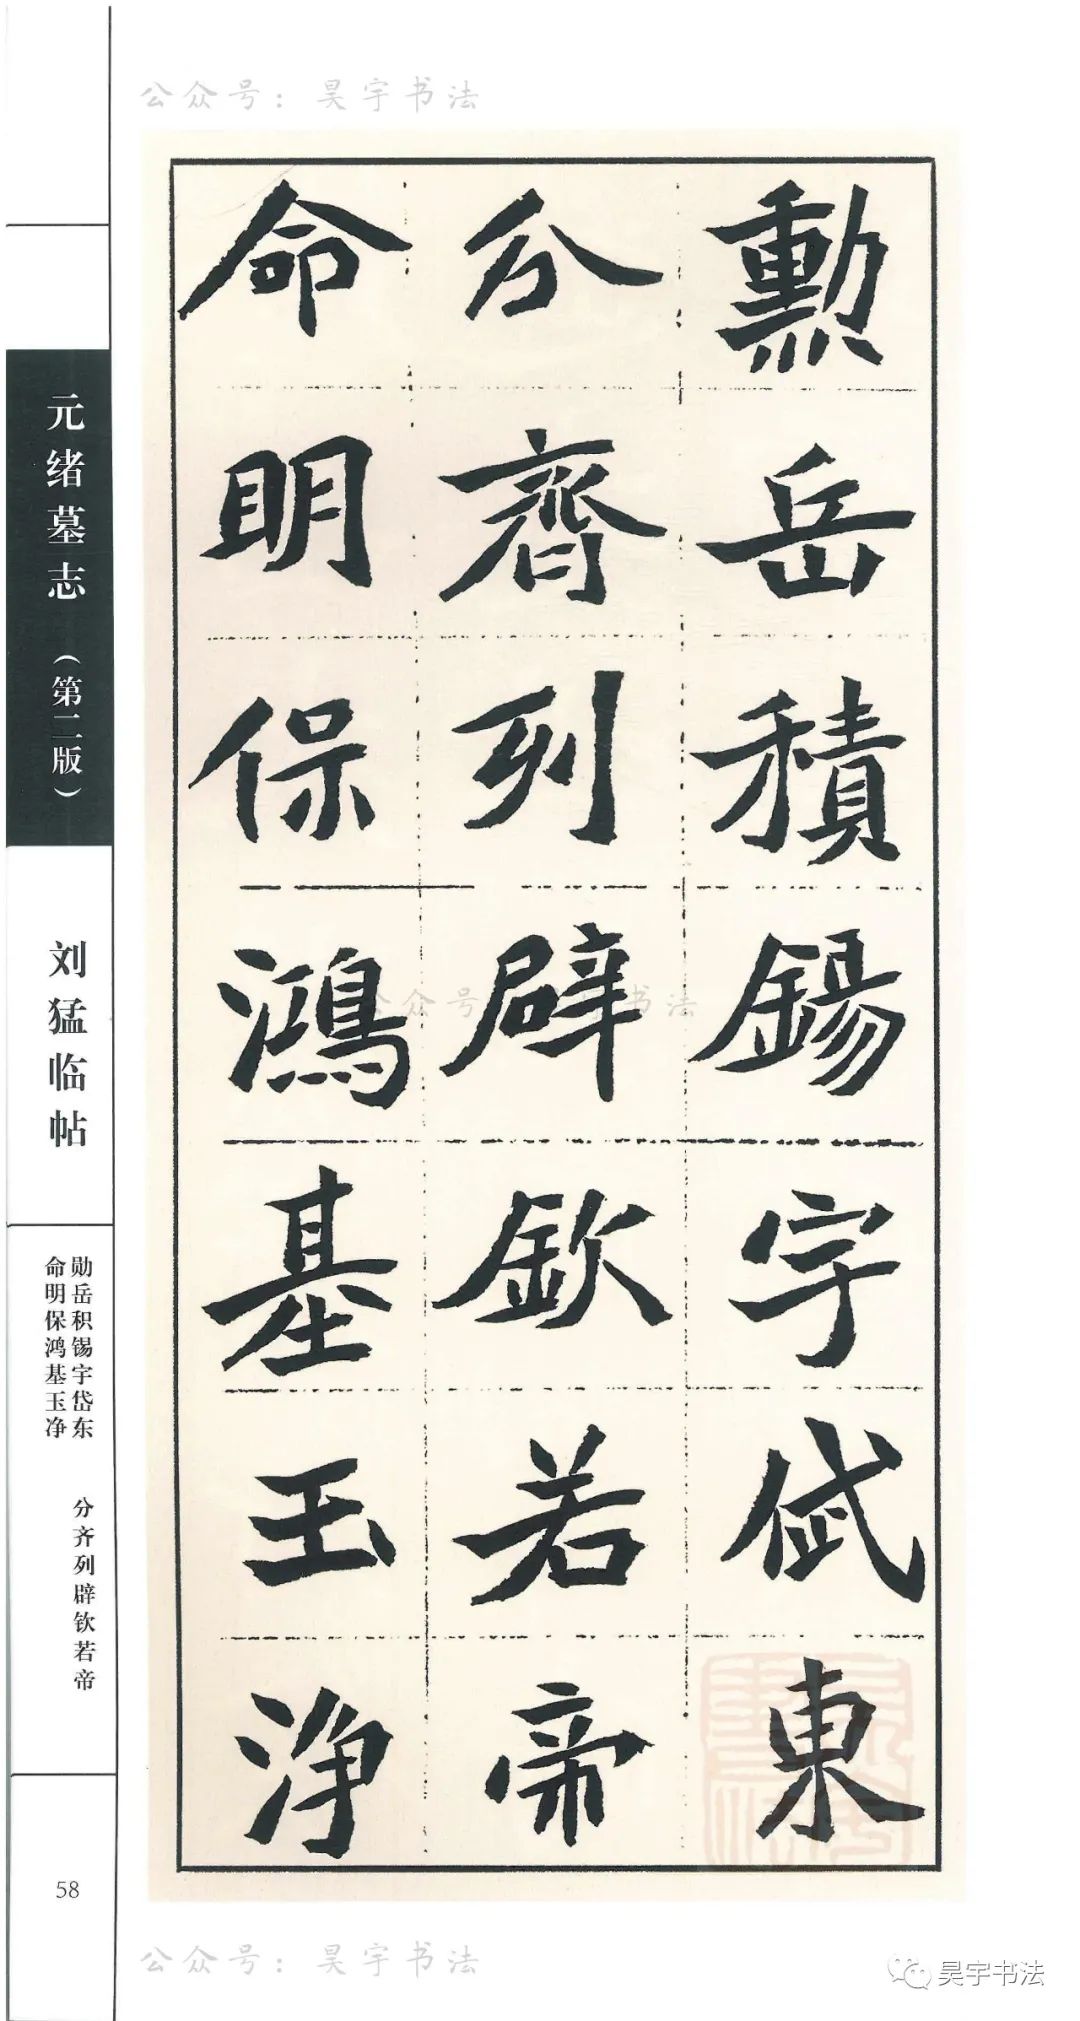 公众号：昊宇书法
勲岳積錫宇岱東
分齊列辟欽若帝
命明保鴻基玉净
元绪墓志（第二版）
刘猛临帖
勋岳积锡宇岱东
分齐列辟钦若帝
命明保鸿基玉净
58
公众号：昊宇书法
昊宇书法